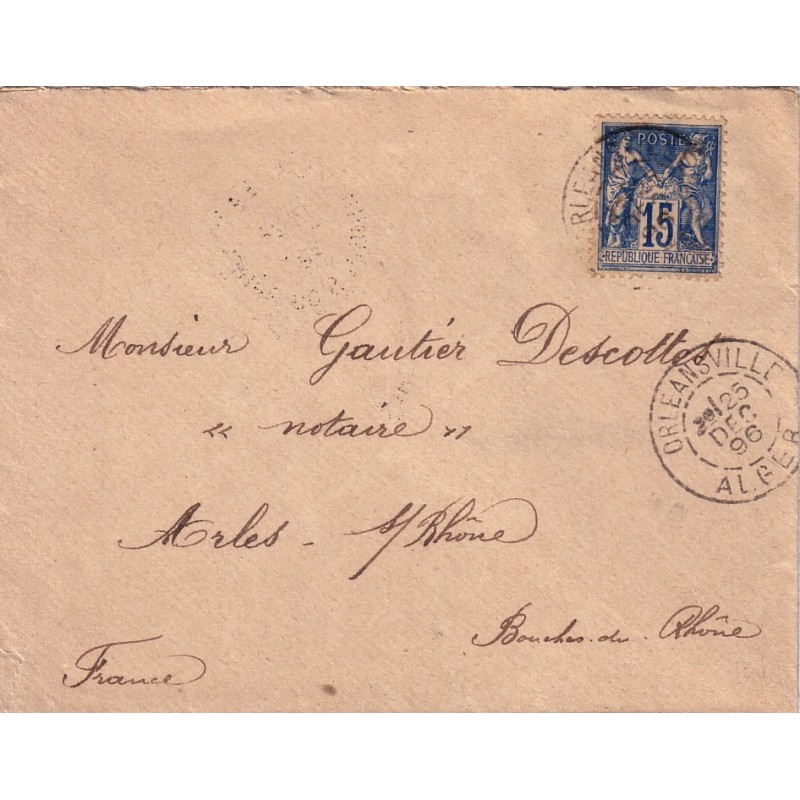 POSTE
15
RÉPUBLIQUE FRANÇAISE
Monsieur Gautier Descottes
« notaire »
Arles - s/Rhône
Bouches-du-Rhône
France
ORLEANSVILLE
25
DEC
96
ALGER